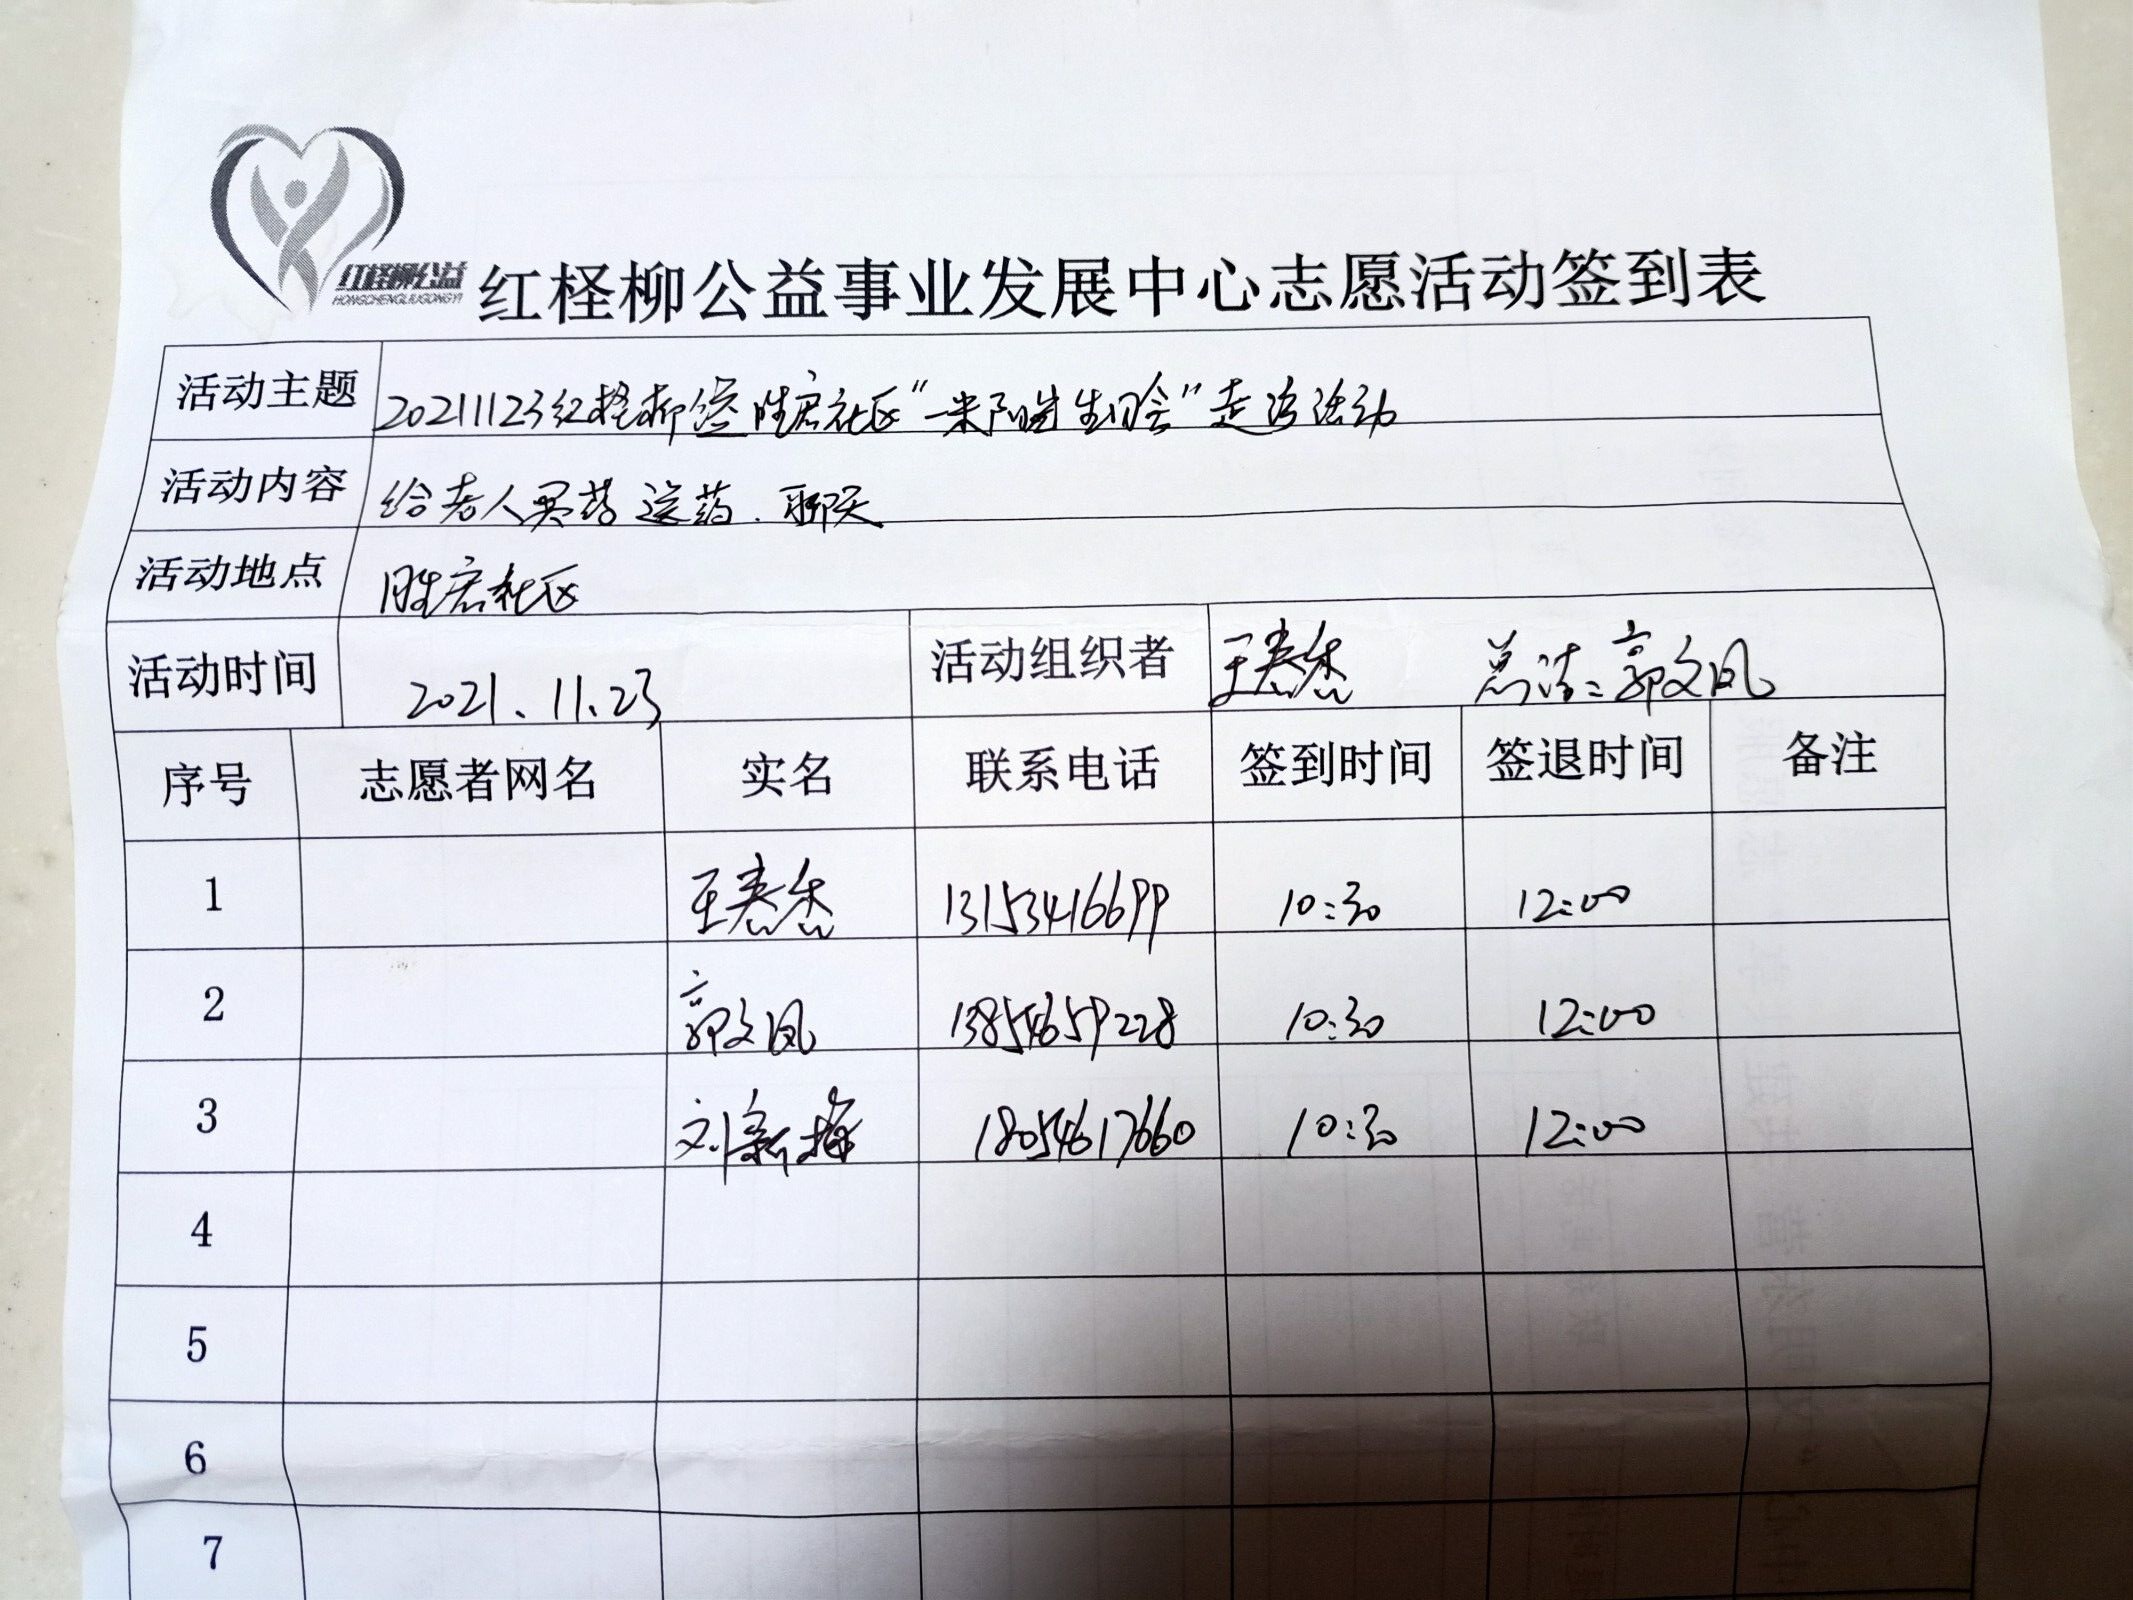 红柽柳公益
HONGCHENGLIUGONGYI
红柽柳公益事业发展中心志愿活动签到表
活动主题 20211123红柽柳 胜宏社区“一米阳光生日会”走访活动
活动内容 给老人买药 送药.聊天
活动地点 胜宏社区
活动时间 2021.11.23 活动组织者 王志杰 总结:郭文凤
序号 志愿者网名 实名 联系电话 签到时间 签退时间 备注
1 13153416699 10:30 12:00
2 郭文凤 13854659228 10:30 12:00
3 刘新梅 18054617660 10:30 12:00
4
5
6
7